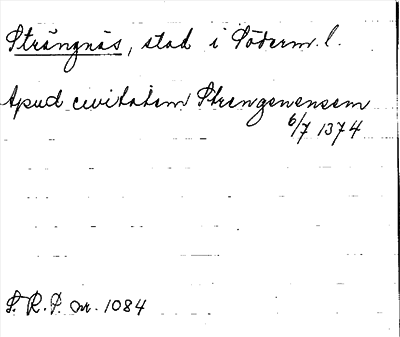 Strängnäs, stad i Söderm. l.
Apud civitatem Strengenensem
6/7 1374
S. R. P. nr. 1084